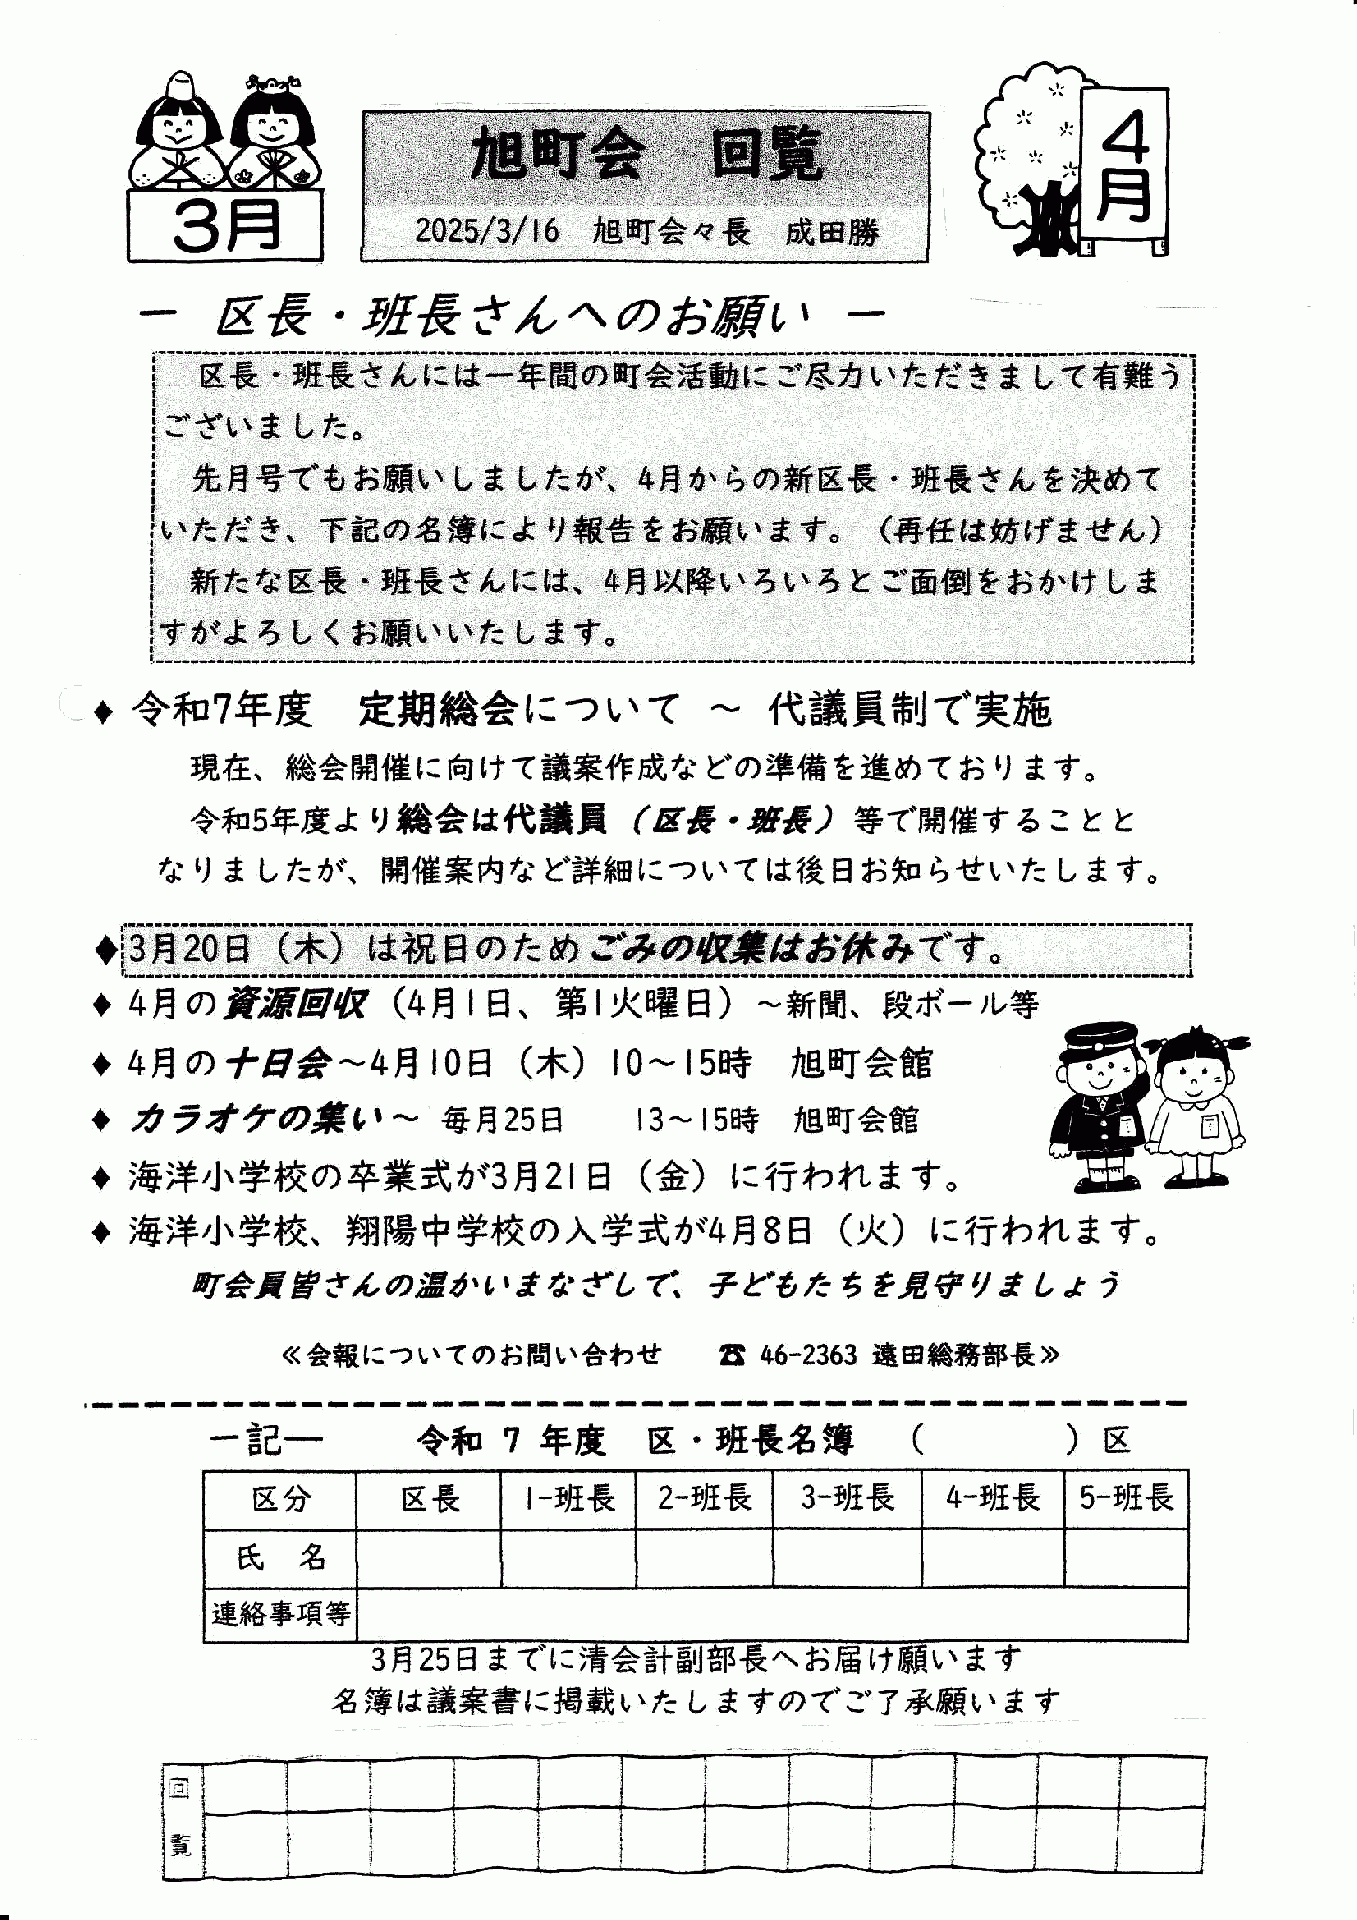 3月
旭町会　回覧
2025/3/16　旭町会々長　成田勝
4月
ー 区長・班長さんへのお願い ー
区長・班長さんには一年間の町会活動にご尽力いただきまして有難う
ございました。
先月号でもお願いしましたが、4月からの新区長・班長さんを決めて
いただき、下記の名簿により報告をお願います。（再任は妨げません）
新たな区長・班長さんには、4月以降いろいろとご面倒をおかけしま
すがよろしくお願いいたします。
♦ 令和7年度　定期総会について ～ 代議員制で実施
現在、総会開催に向けて議案作成などの準備を進めております。
令和5年度より総会は代議員（区長・班長）等で開催することと
なりましたが、開催案内など詳細については後日お知らせいたします。
♦3月20日（木）は祝日のためごみの収集はお休みです。
♦ 4月の資源回収（4月1日、第1火曜日）～新聞、段ボール等
♦ 4月の十日会～4月10日（木）10～15時　旭町会館
♦ カラオケの集い～ 毎月25日　13～15時　旭町会館
♦ 海洋小学校の卒業式が3月21日（金）に行われます。
♦ 海洋小学校、翔陽中学校の入学式が4月8日（火）に行われます。
町会員皆さんの温かいまなざしで、子どもたちを見守りましょう
≪会報についてのお問い合わせ　☎ 46-2363 遠田総務部長≫
ー記ー　令和 7 年度　区・班長名簿　（　　　）区
区分 区長 1-班長 2-班長 3-班長 4-班長 5-班長
氏　名
連絡事項等
3月25日までに清会計副部長へお届け願います
名簿は議案書に掲載いたしますのでご了承願います
回
覧